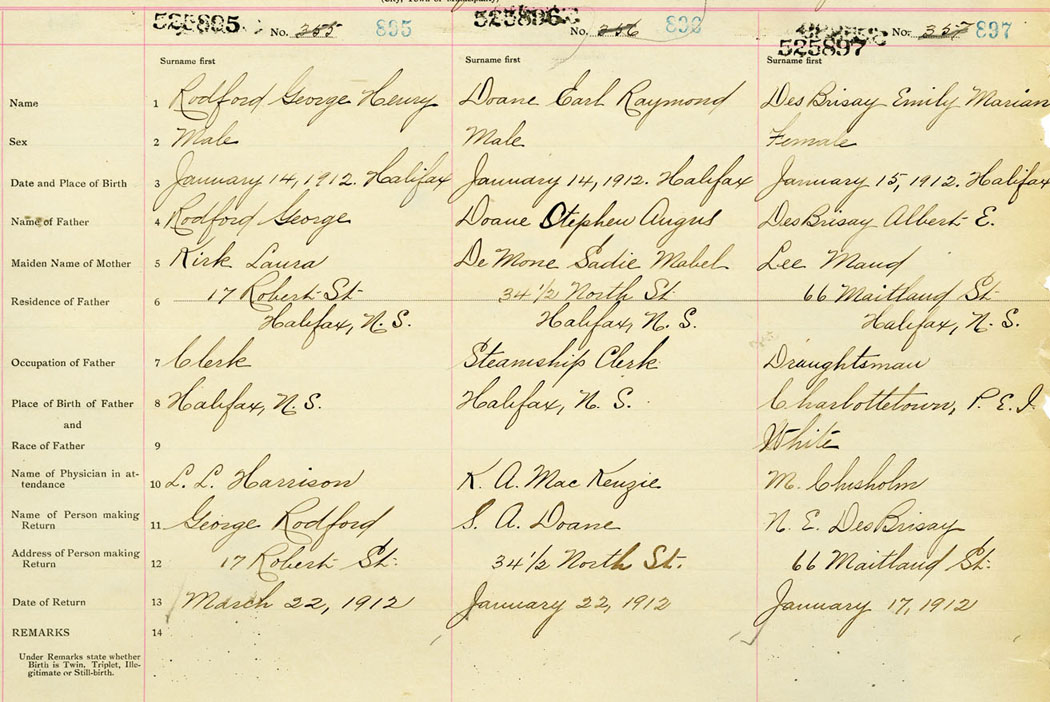 (City, Town or Municipality)
525895 No. 355 895
525896 No. 356 896
525897 No. 357 897
Surname first Surname first Surname first
Name 1 Rodford George Henry Doane Earl Raymond DesBrisay Emily Marian
Sex 2 Male Male Female
Date and Place of Birth 3 January 14, 1912. Halifax January 14, 1912. Halifax January 15, 1912. Halifax
Name of Father 4 Rodford George Doane Stephen Angus DesBrisay Albert E.
Maiden Name of Mother 5 Kirk Laura De Mone Sadie Mabel Lee Maud
Residence of Father 6 17 Robert St. 34 1/2 North St. 66 Maitland St.
Halifax, N. S. Halifax, N. S. Halifax, N. S.
Occupation of Father 7 Clerk Steamship Clerk Draughtsman
Place of Birth of Father 8 Halifax, N. S. Halifax, N. S. Charlottetown, P. E. I
and
Race of Father 9 White
Name of Physician in at-
tendance 10 L. L. Harrison K. A. MacKenzie M. Chisholm
Name of Person making
Return 11 George Rodford S. A. Doane N. E. DesBrisay
Address of Person making
Return 12 17 Robert St. 34 1/2 North St. 66 Maitland St.
Date of Return 13 March 22, 1912 January 22, 1912 January 17, 1912
REMARKS 14
Under Remarks state whether
Birth is Twin, Triplet, Ille-
gitimate or Still-birth.